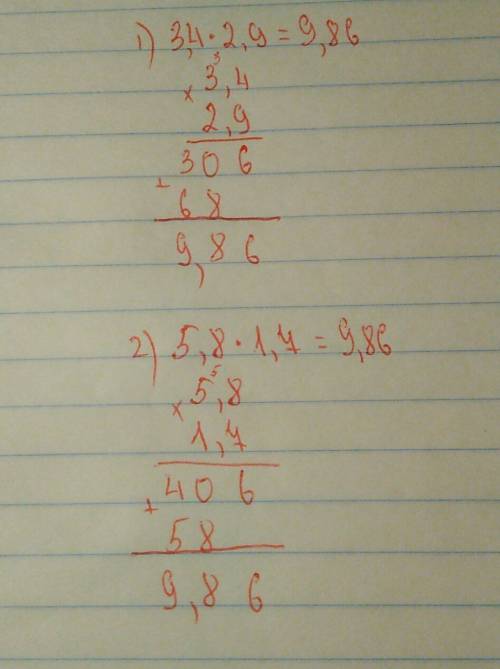 1) 3,4 · 2,9 = 9,86
3
× 3,4
2,9
306
+
68
9,86
2) 5,8 · 1,7 = 9,86
5
× 5,8
1,7
406
+
58
9,86